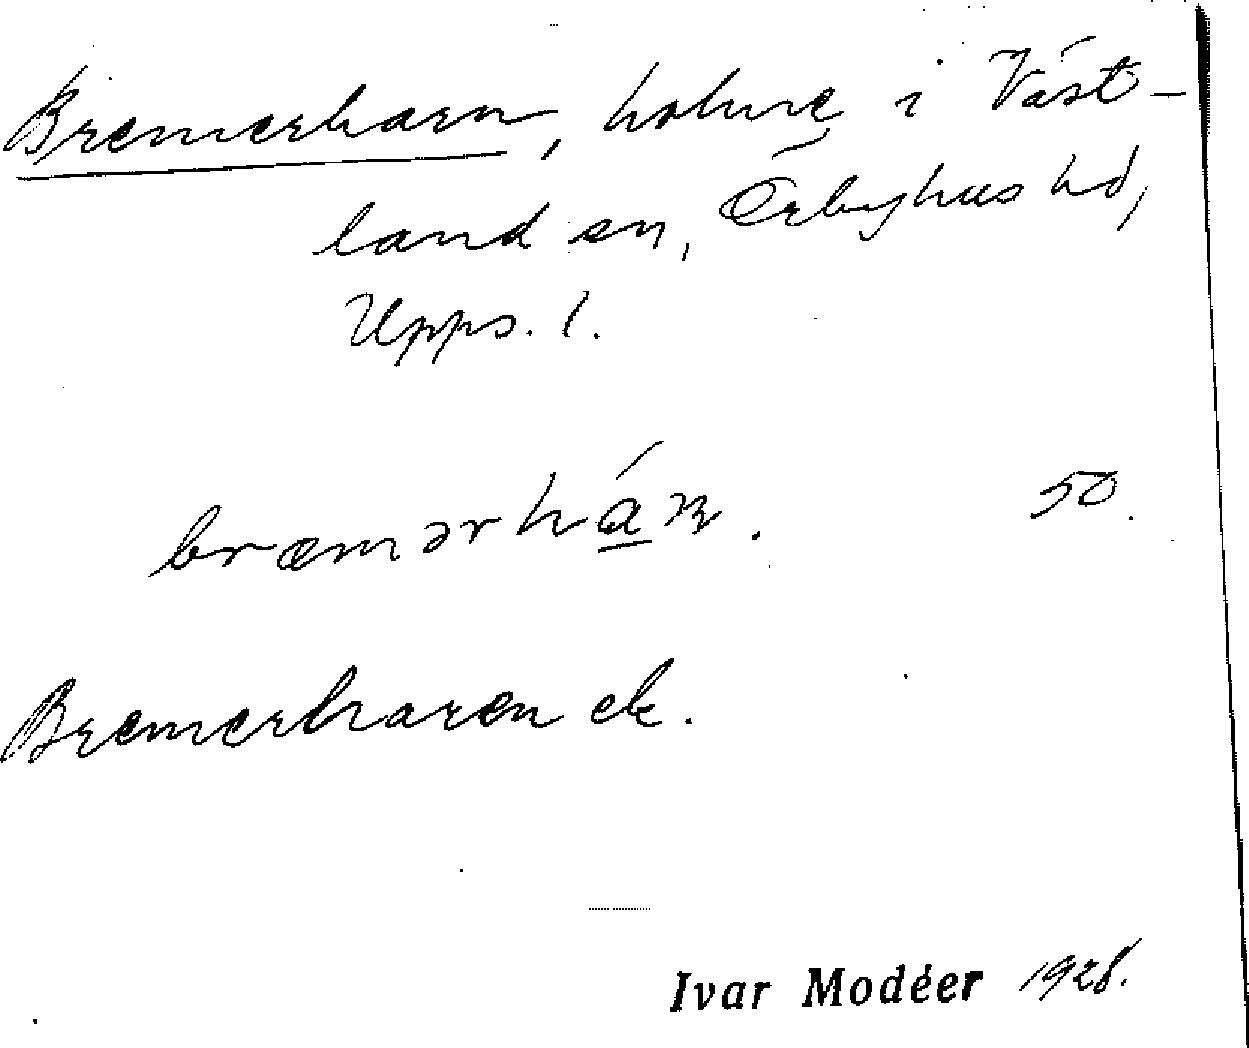 Bremerhavn, holme i Väst-
land sn, Örbyhus hd,
Upps. l.
bræmərhán. 50.
Bremerhaven ek.
Ivar Modéer 1928.